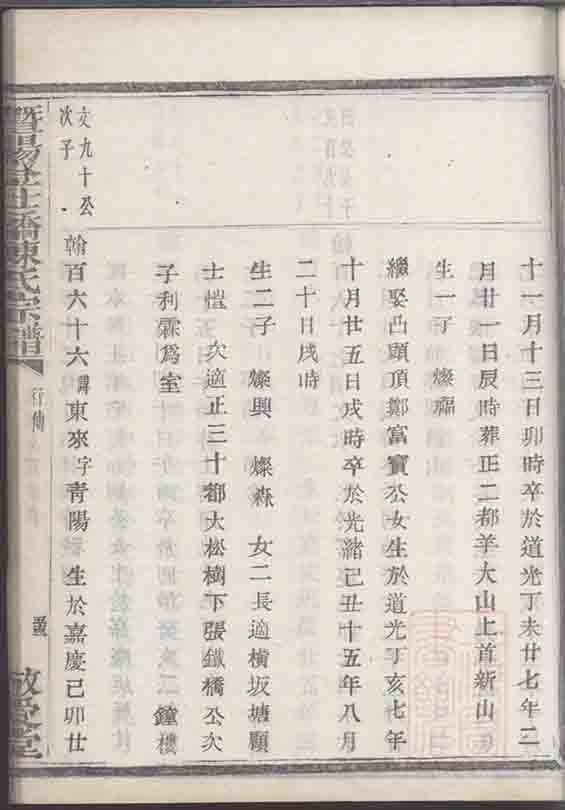 十一月十三日卯時卒於道光丁未廿七年二
月廿一日辰時葬正二都羊大山上首新山
生一子 燦福
繼娶凸頭頂鄭富寶公女生於道光丁亥七年
十月廿五日戌時卒於光緒己丑十五年八月
二十日戌時
生二子 燦興 燦森 女二長適橫坂塘顯
士愷 次適正三十都大松樹下張鐵橋公次
子利霖爲室 鐘樓
文九十公
次子
翰百六十六諱東來字青陽 生於嘉慶己卯廿
暨陽 橋陳氏宗譜
行傳